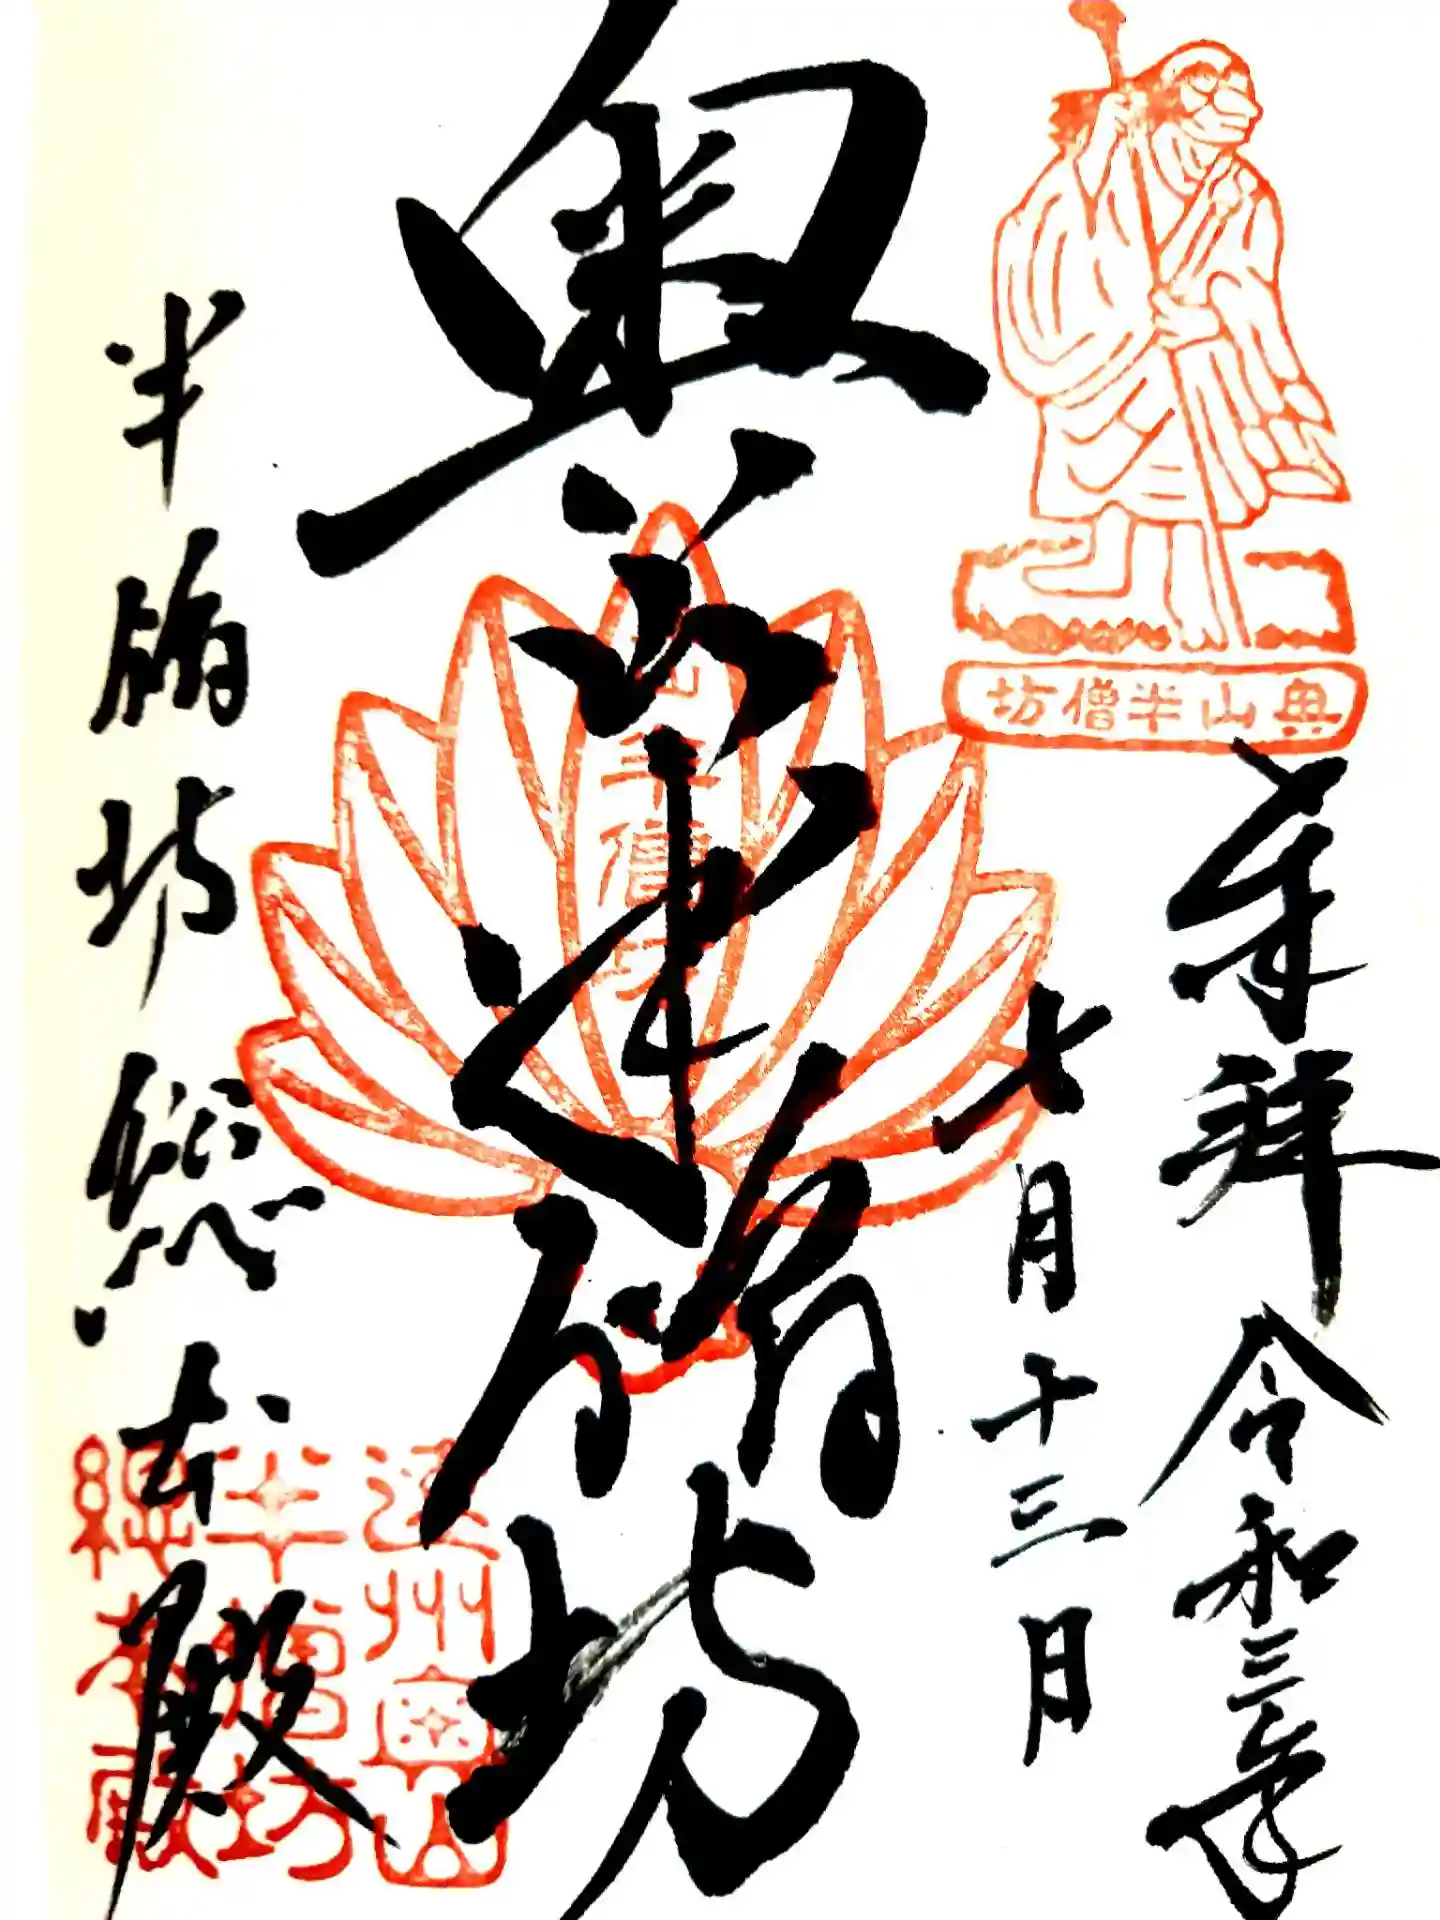 奉拝 令和三年
七月十三日
奥山半僧坊
奥山半僧坊
半僧坊総本殿
遠州奥山
半僧坊
総本殿